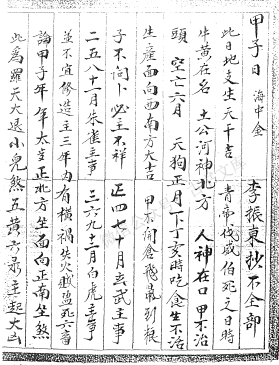 甲子日 海中金 李振東抄不全部
此日地支生天干吉 青帝伐威伯死之日時
牛黄在名 土公河神北方 人神在口 甲不治
頭 空亡六月 天狗正月丁丁亥時吃食生不治
生產面向西南方大吉 甲不開倉 飛最列根
子不问卜必主不祥 正四七十月玄武主事
二五八十一月朱雀主事 三六九十二月白虎主事
並不宜修造主三年内有横禍災火盜死六畜
論甲子年年太生正北方坐面向正南坐煞
此為羅天大退小兒煞五黄 主起大凶